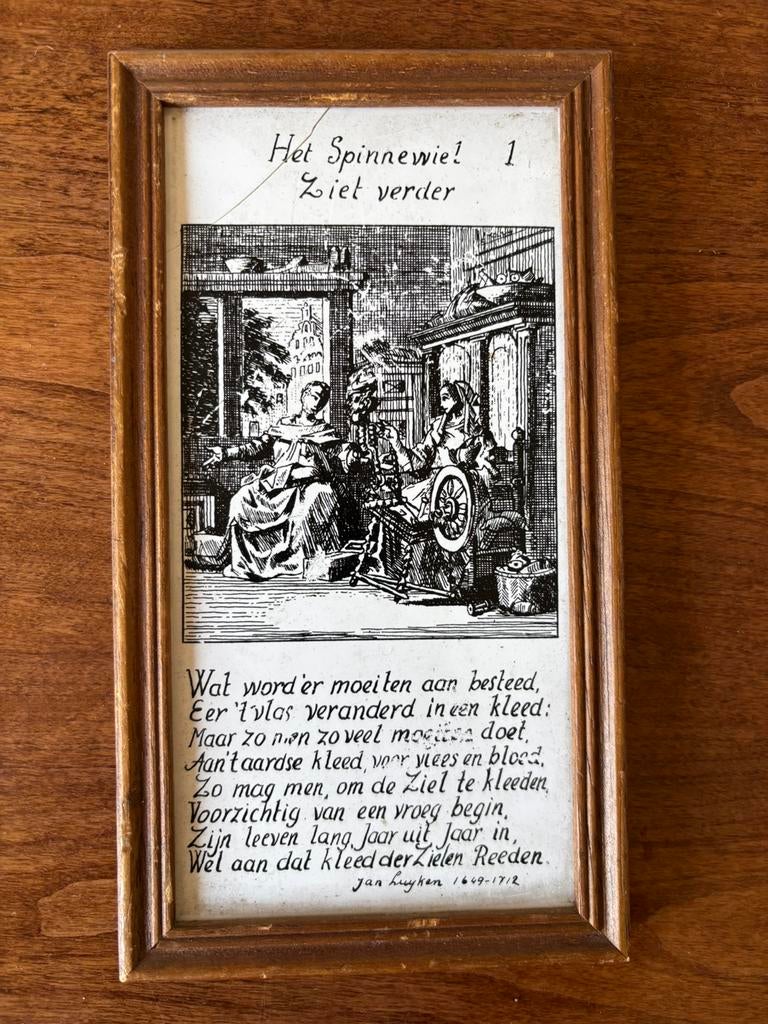 Het Spinnewiel 1
Ziet verder
Wat word'er moeiten aan besteed,
Eer 't vlas veranderd in een kleed:
Maar zo men zo veel moeiten doet,
Aan't aardse kleed, voor vlees en bloed,
Zo mag men, om de Ziel te kleeden,
Voorzichtig van een vroeg begin,
Zijn leeven lang, Jaar uit Jaar in,
Wel aan dat kleed der Zielen Reeden.
Jan Luyken 1649-1712